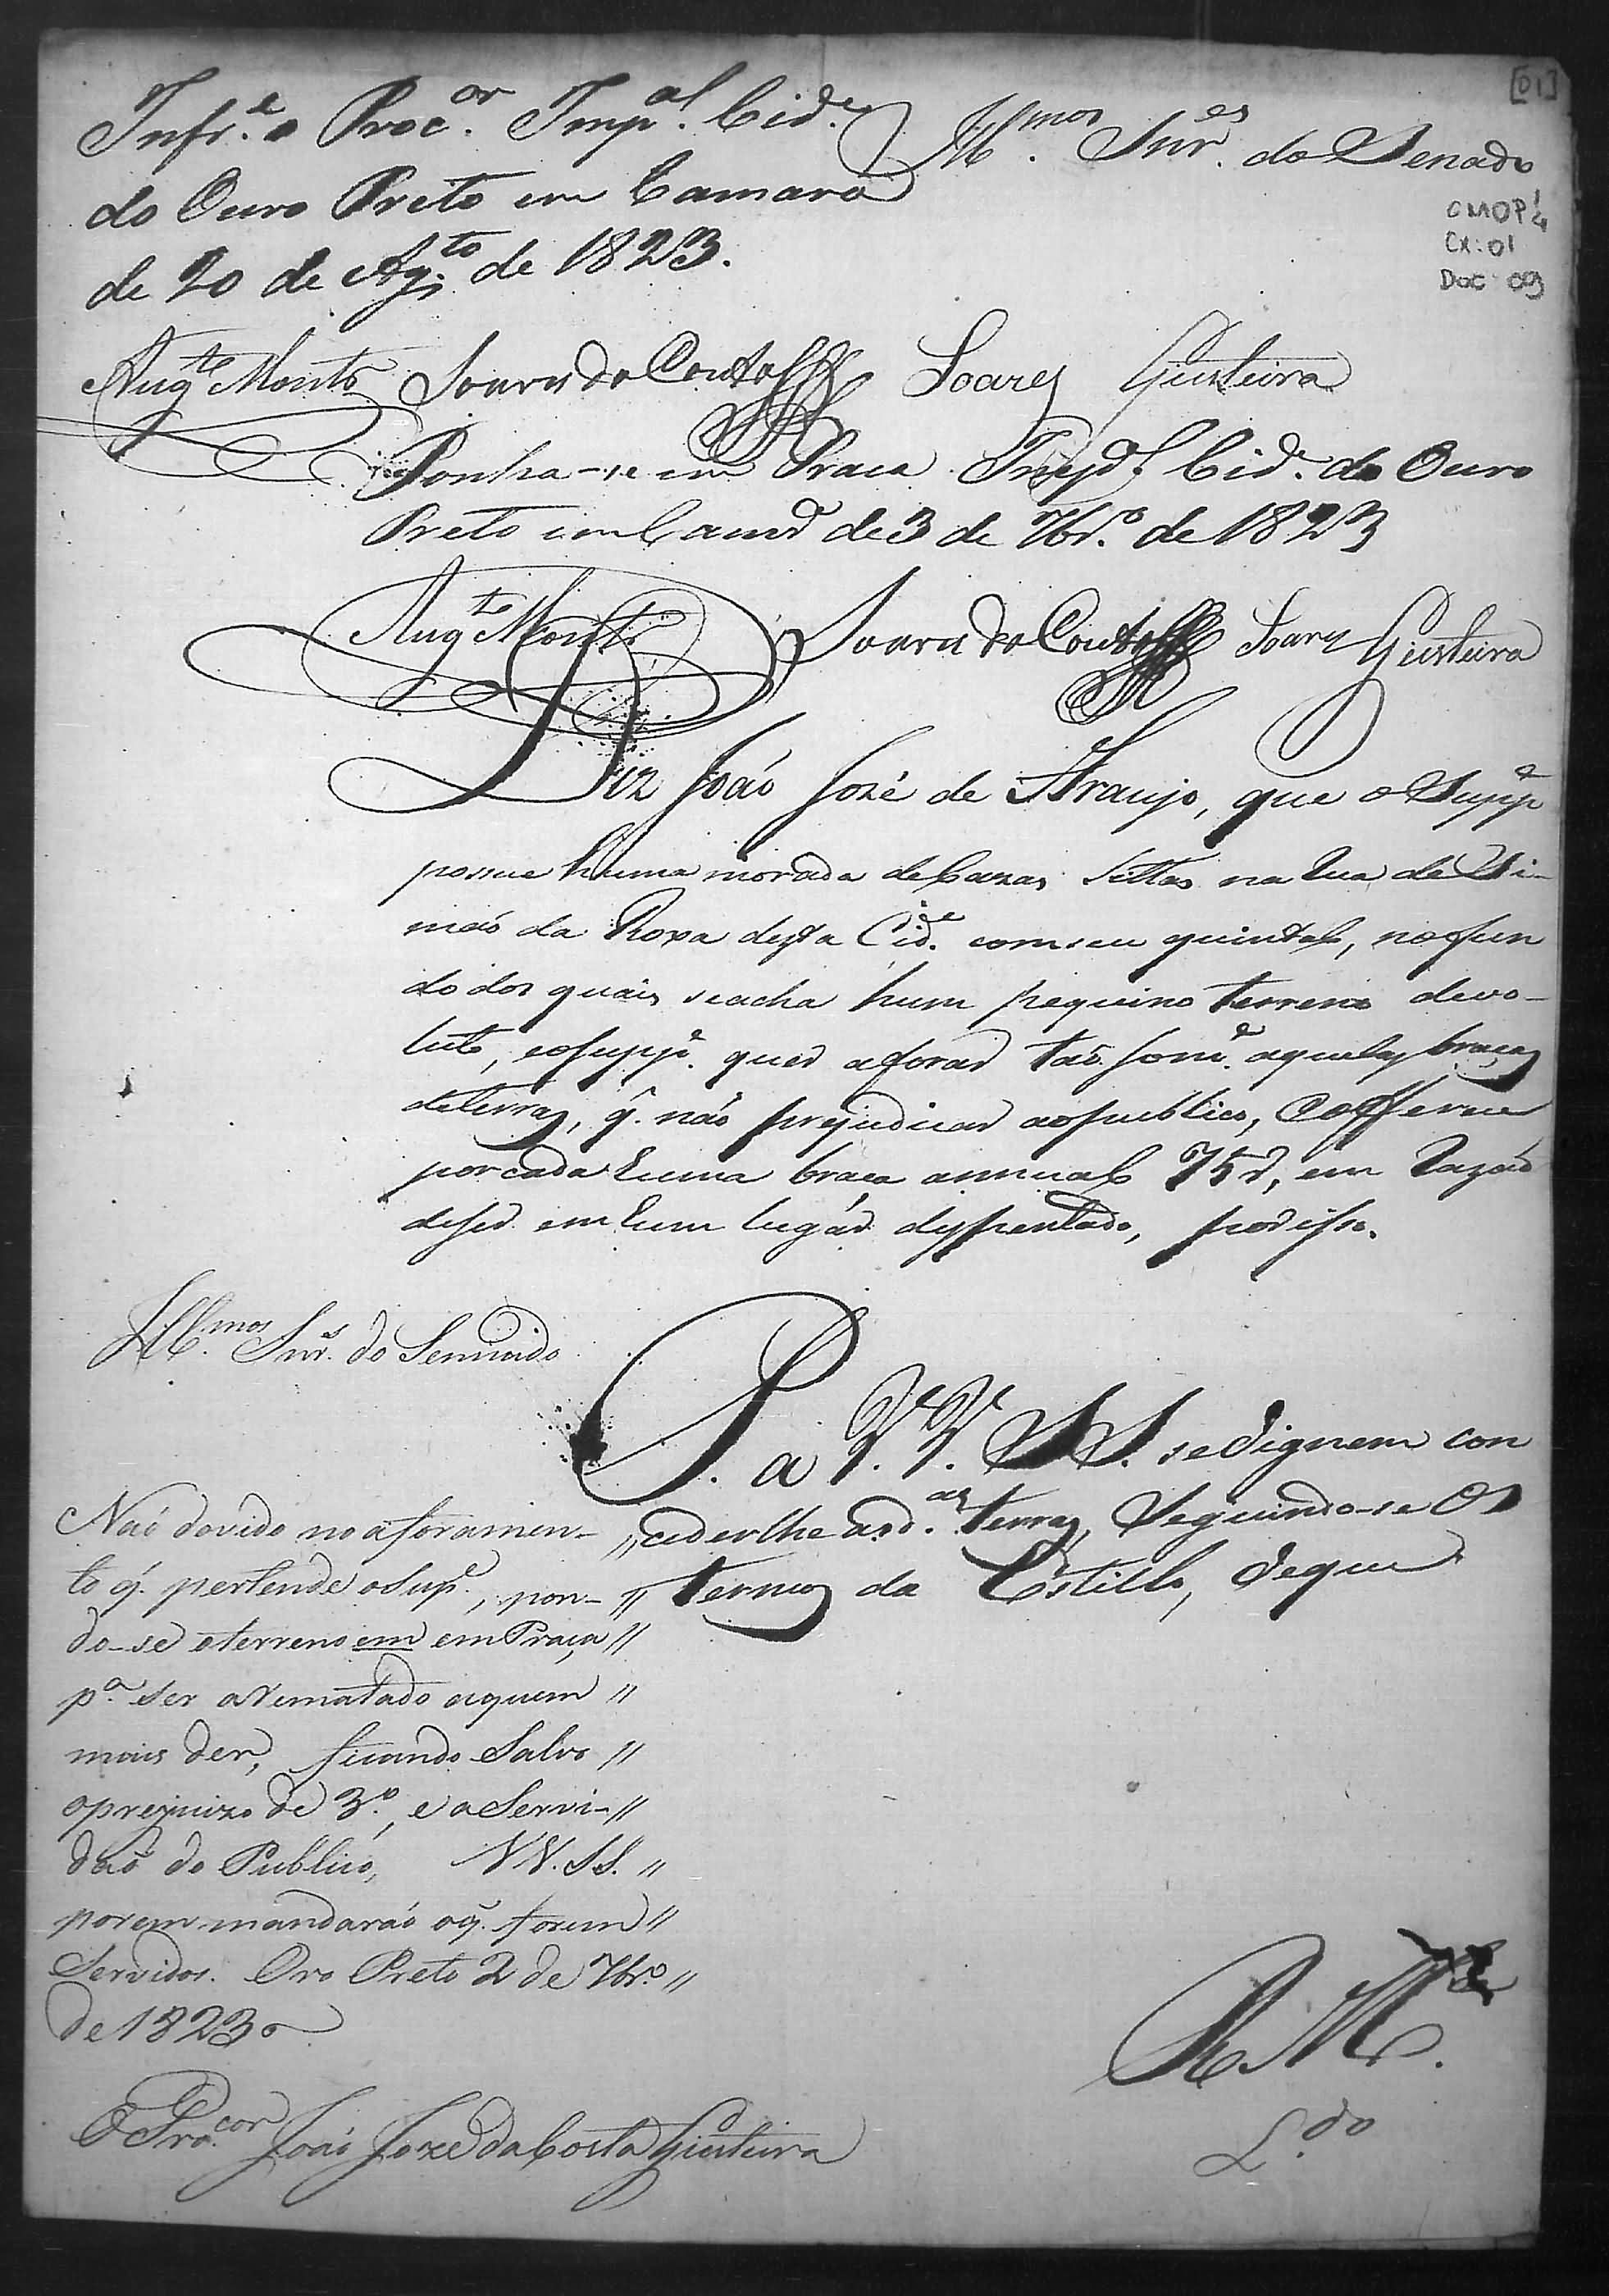 [01]
Infr.e o Proc.or Imp.al Cid.e
do Ouro Preto em Camara
de 20 de Ag.to de 1823.
Ill.mos Snr.es do Senado
CMOP 1/4
CX: 01
DOC 09
Aug.to Mont.o Soares do Couto Soares Giesteira
Ponha-se em Praca Imp.al Cid.e do Ouro
Preto em Camr.a de 3 de 7br.o de 1823
Aug.to Mont.o Soares do Couto Soares Giesteira
Diz João José de Araujo, que o Supp.e
possue huma morada de Cazas sittas na Rua de Si-
mão da Roxa desta Cid.e com seu quintal, no fun
do dos quais se acha hum piquino terreno devo-
luto, e o supp.e quer aforar tão som.e aquelas braças
de terras, q. não prejudicar ao publico, e offerece
por cada huma braça annual 75 r, em Razão
de ser em hum lugar dispenhado, por isso.
P. a V.V. S.S. se dignem con
cederlhe as d.as terras, Seguindo-se os
termos da Estillo, de que
R. M.ce
L.do
Ill.mos Snr.s do Sennado
Naó dovido no aforamen-
to q. pertende o Sup.e, pon-
do-se o terreno em em Praça
p.a ser arematado a quem
mais der, ficando Salvo
o prejuizo de 3.o, e a Servi-
daõ do Publico, VV. SS.
porem mandaráõ o q. forem
Servidos. Oro Preto 2 de 7br.o
de 1823
O Pro.cor João Joze da Costa Giesteira